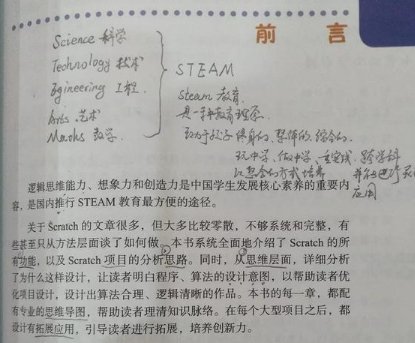 前 言
Science 科学
Technology 技术
Egineering 工程
Arts 艺术
Maths 数学
STEAM
steam 教育
是一种教育理念
玩中学、做中学、 跨学科
应用
逻辑思维能力、想象力和创造力是中国学生发展核心素养的重要内
容,是国内推行 STEAM 教育最方便的途径。
关于 Scratch 的文章很多,但大多比较零散,不够系统和完整,有
些甚至只从方法层面谈了如何做。本书系统全面地介绍了 Scratch 的所
有功能,以及 Scratch 项目的分析思路。同时,从思维层面,详细分析
了为什么这样设计,让读者明白程序、算法的设计意图,以帮助读者优
化项目设计,设计出算法合理、逻辑清晰的作品。本书的每一章,都配
有专业的思维导图,帮助读者理清知识脉络。在每个大型项目之后,都
设计有拓展应用,引导读者进行拓展,培养创新力。